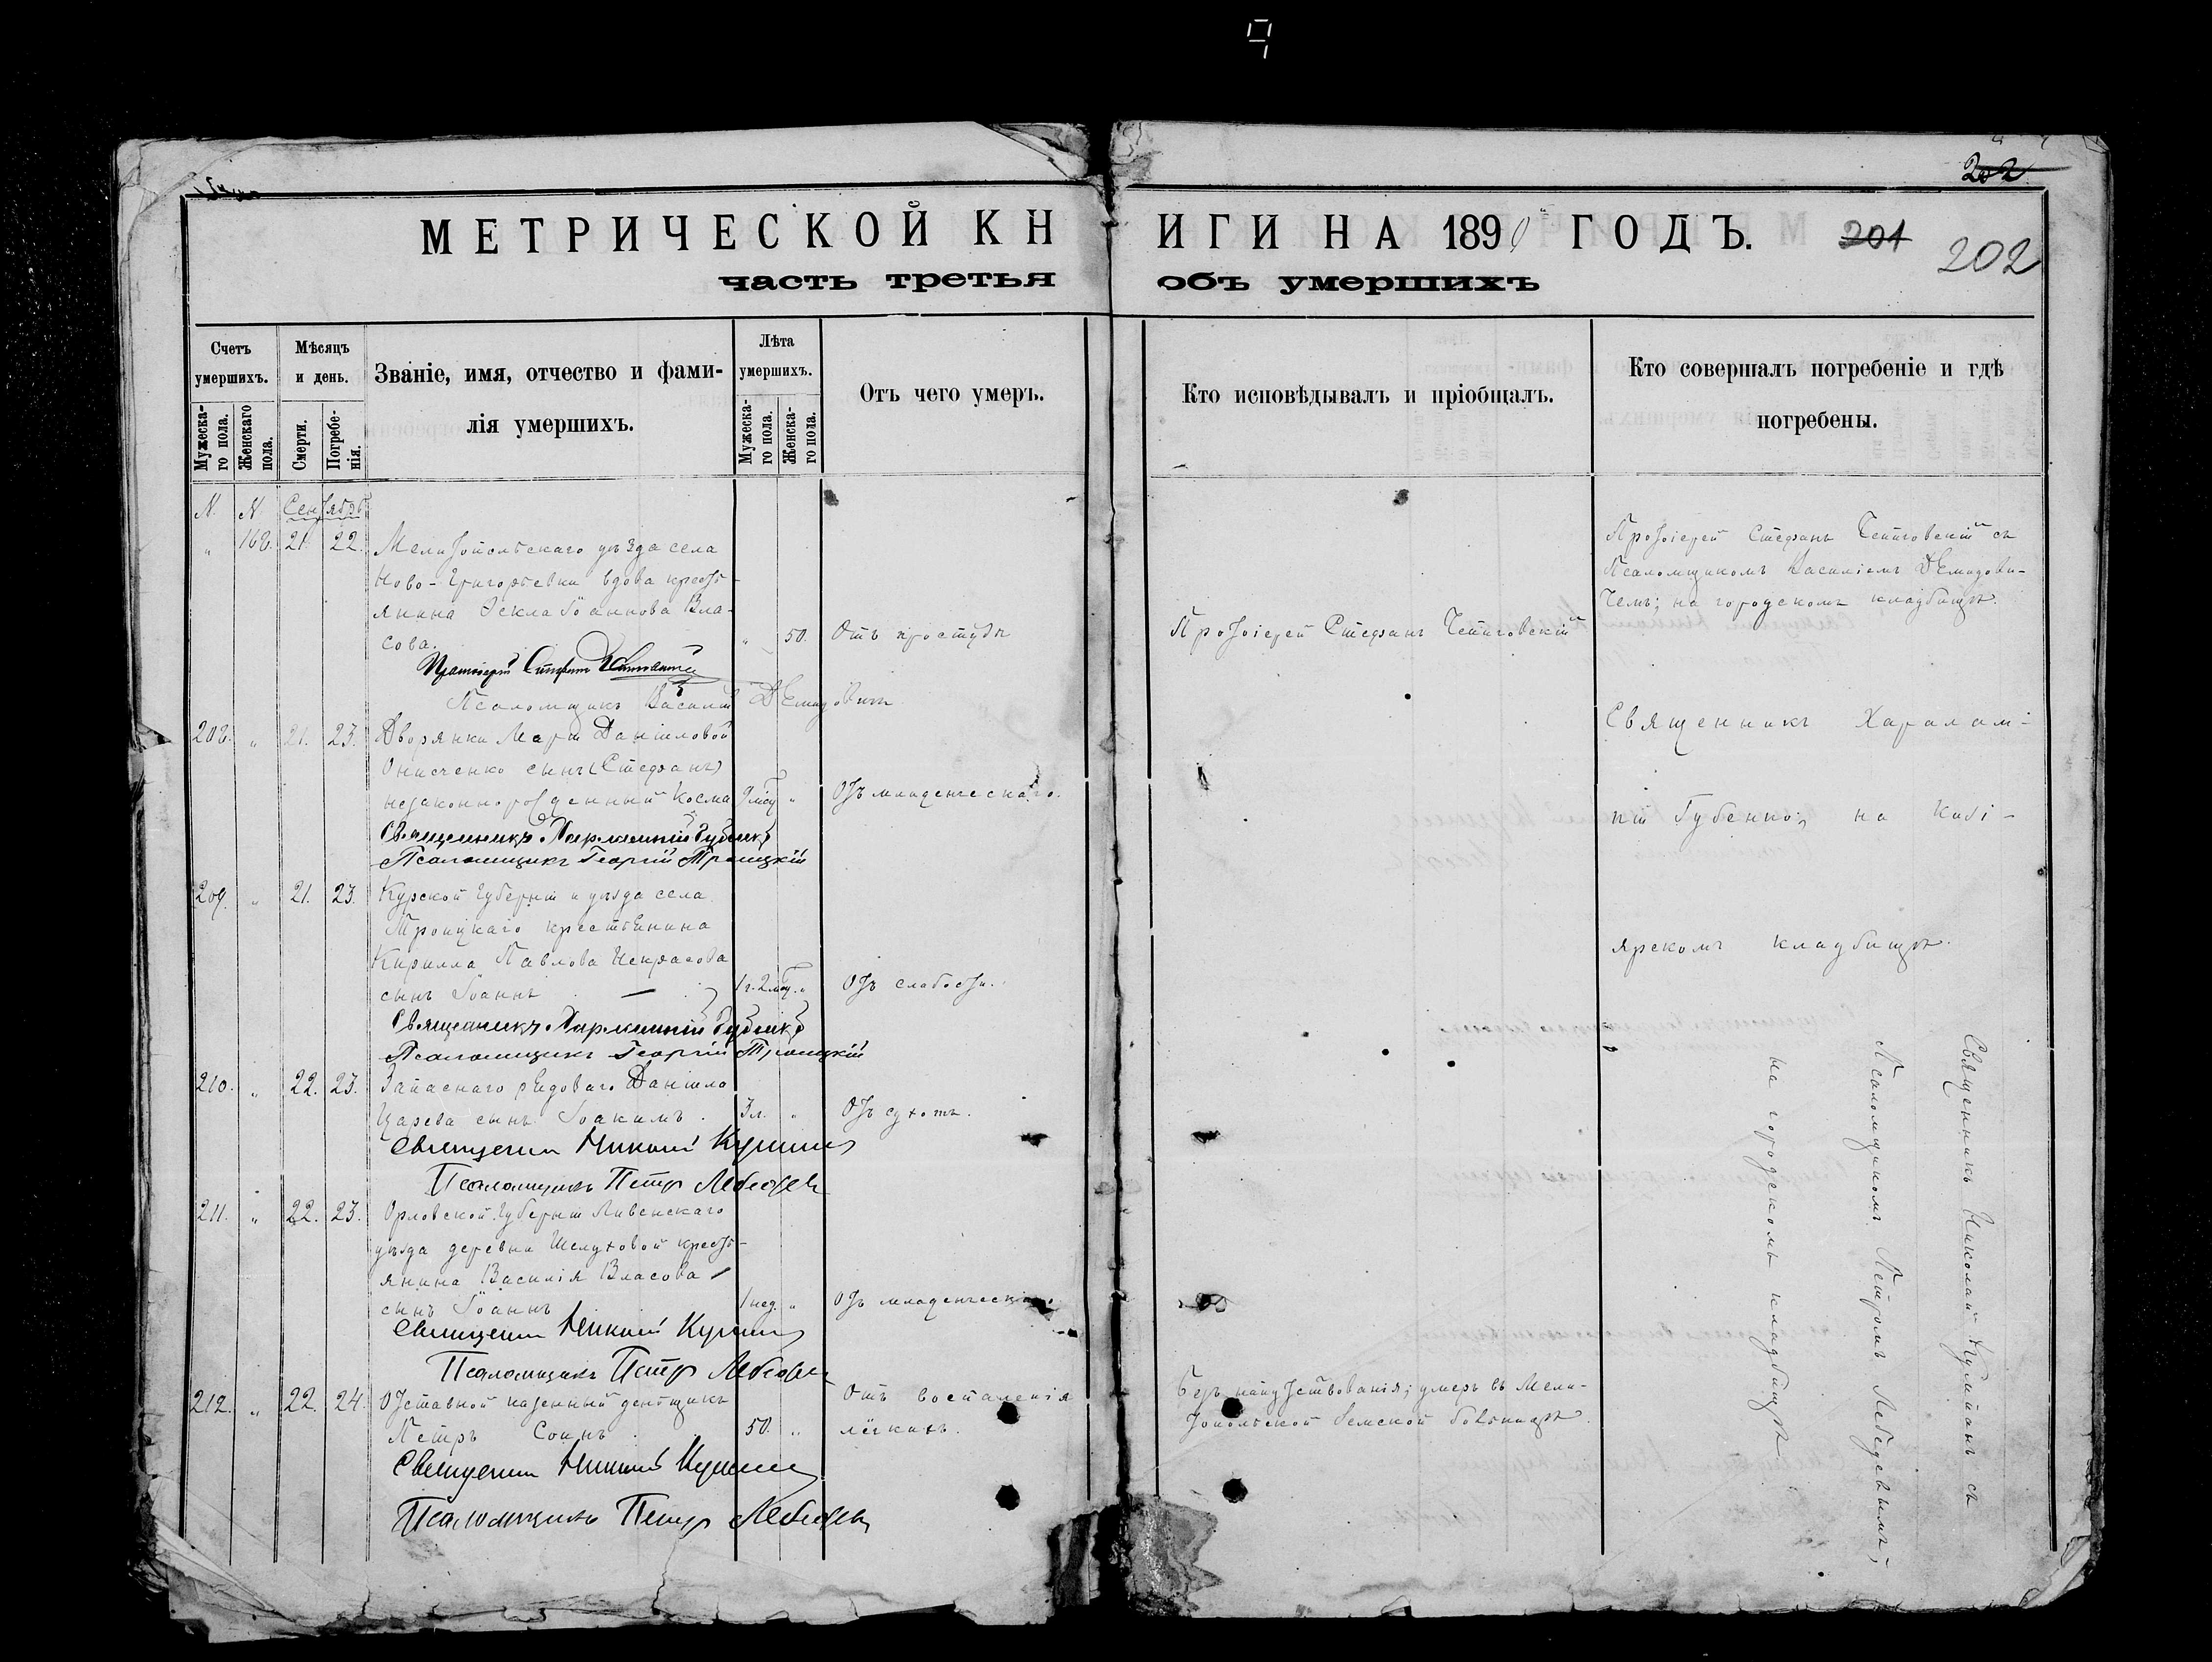 202
МЕТРИЧЕСКОЙ КНИГИ НА 1890 ГОДЪ.
201 202
часть третья объ умершихъ
Счетъ умершихъ.
Мужеска-
го пола.
Женскаго
пола.
Мѣсяцъ и день.
Смерти.
Погребе-
нія.
Званіе, имя, отчество и фами-
лія умершихъ.
Лѣта умершихъ.
Мужеска-
го пола.
Женска-
го пола.
Отъ чего умеръ.
Кто исповѣдывалъ и пріобщалъ.
Кто совершалъ погребеніе и гдѣ
погребены.
N. N. Сентябрь
„ 168. 21. 22. Мелитопольскаго уѣзда села
Ново-Григорьевки вдова кресть-
янина Ѳекла Іоаннова Вла-
сова. „ 50. Отъ простуды
Протоіерей Стефанъ
Протоіерей Стефанъ
Псаломщикъ Василій Демидовичъ
Протоіерей Стефанъ съ
Псаломщикомъ Василіемъ Демидови-
чемъ; на городскомъ кладбищѣ.
208. „ 21. 23. Дворянки Маріи Даніиловой
Онисченко сынъ (Стефанъ)
незаконнорожденный Косма 9 мсц. „ Отъ младенческаго.
Священникъ Харлампій Губенко
Псаломщикъ Георгій Троицкій
Священникъ Харалам-
пій Губенко; на Кизі-
ярскомъ кладбищѣ.
209. „ 21. 23. Курской губерніи и уѣзда села
Троицкаго крестьянина
Кирилла Павлова Некрасова
сынъ Іоаннъ 1 г. 2 мсц. „ Отъ слабости.
Священникъ Харлампій Губенко
Псаломщикъ Георгій Троицкій
210. „ 22. 23. Запаснаго рядоваго Даніила
Царева сынъ Іоакимъ. 3 л. „ Отъ сухотъ.
Священникъ Николай
Псаломщикъ Петръ Лебедевъ
211. „ 22. 23. Орловской губерніи Ливенскаго
уѣзда деревни Шелуховой кресть-
янина Василія Власова
сынъ Іоаннъ 1 нед. „ Отъ младенческаго.
Священникъ Николай
Псаломщикъ Петръ Лебедевъ
212. „ 22. 24. Отставной казенный деньщикъ
Петръ Сонинъ. 50. „ Отъ воспаленія
лёгкихъ.
Безъ напутствованія; умеръ въ Мели-
топольской Земской больницѣ.
Священникъ Николай
Псаломщикъ Петръ Лебедевъ
Священникъ Николай съ
Псаломщикомъ Петромъ Лебедевымъ;
на городскомъ кладбищѣ